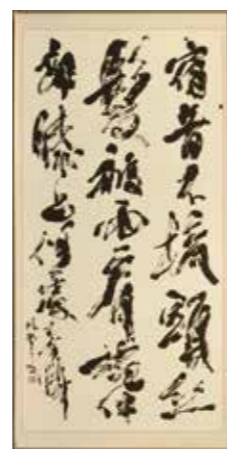 宿昔不梳頭絲
髮被兩肩婉伸
郎膝上何處不可憐